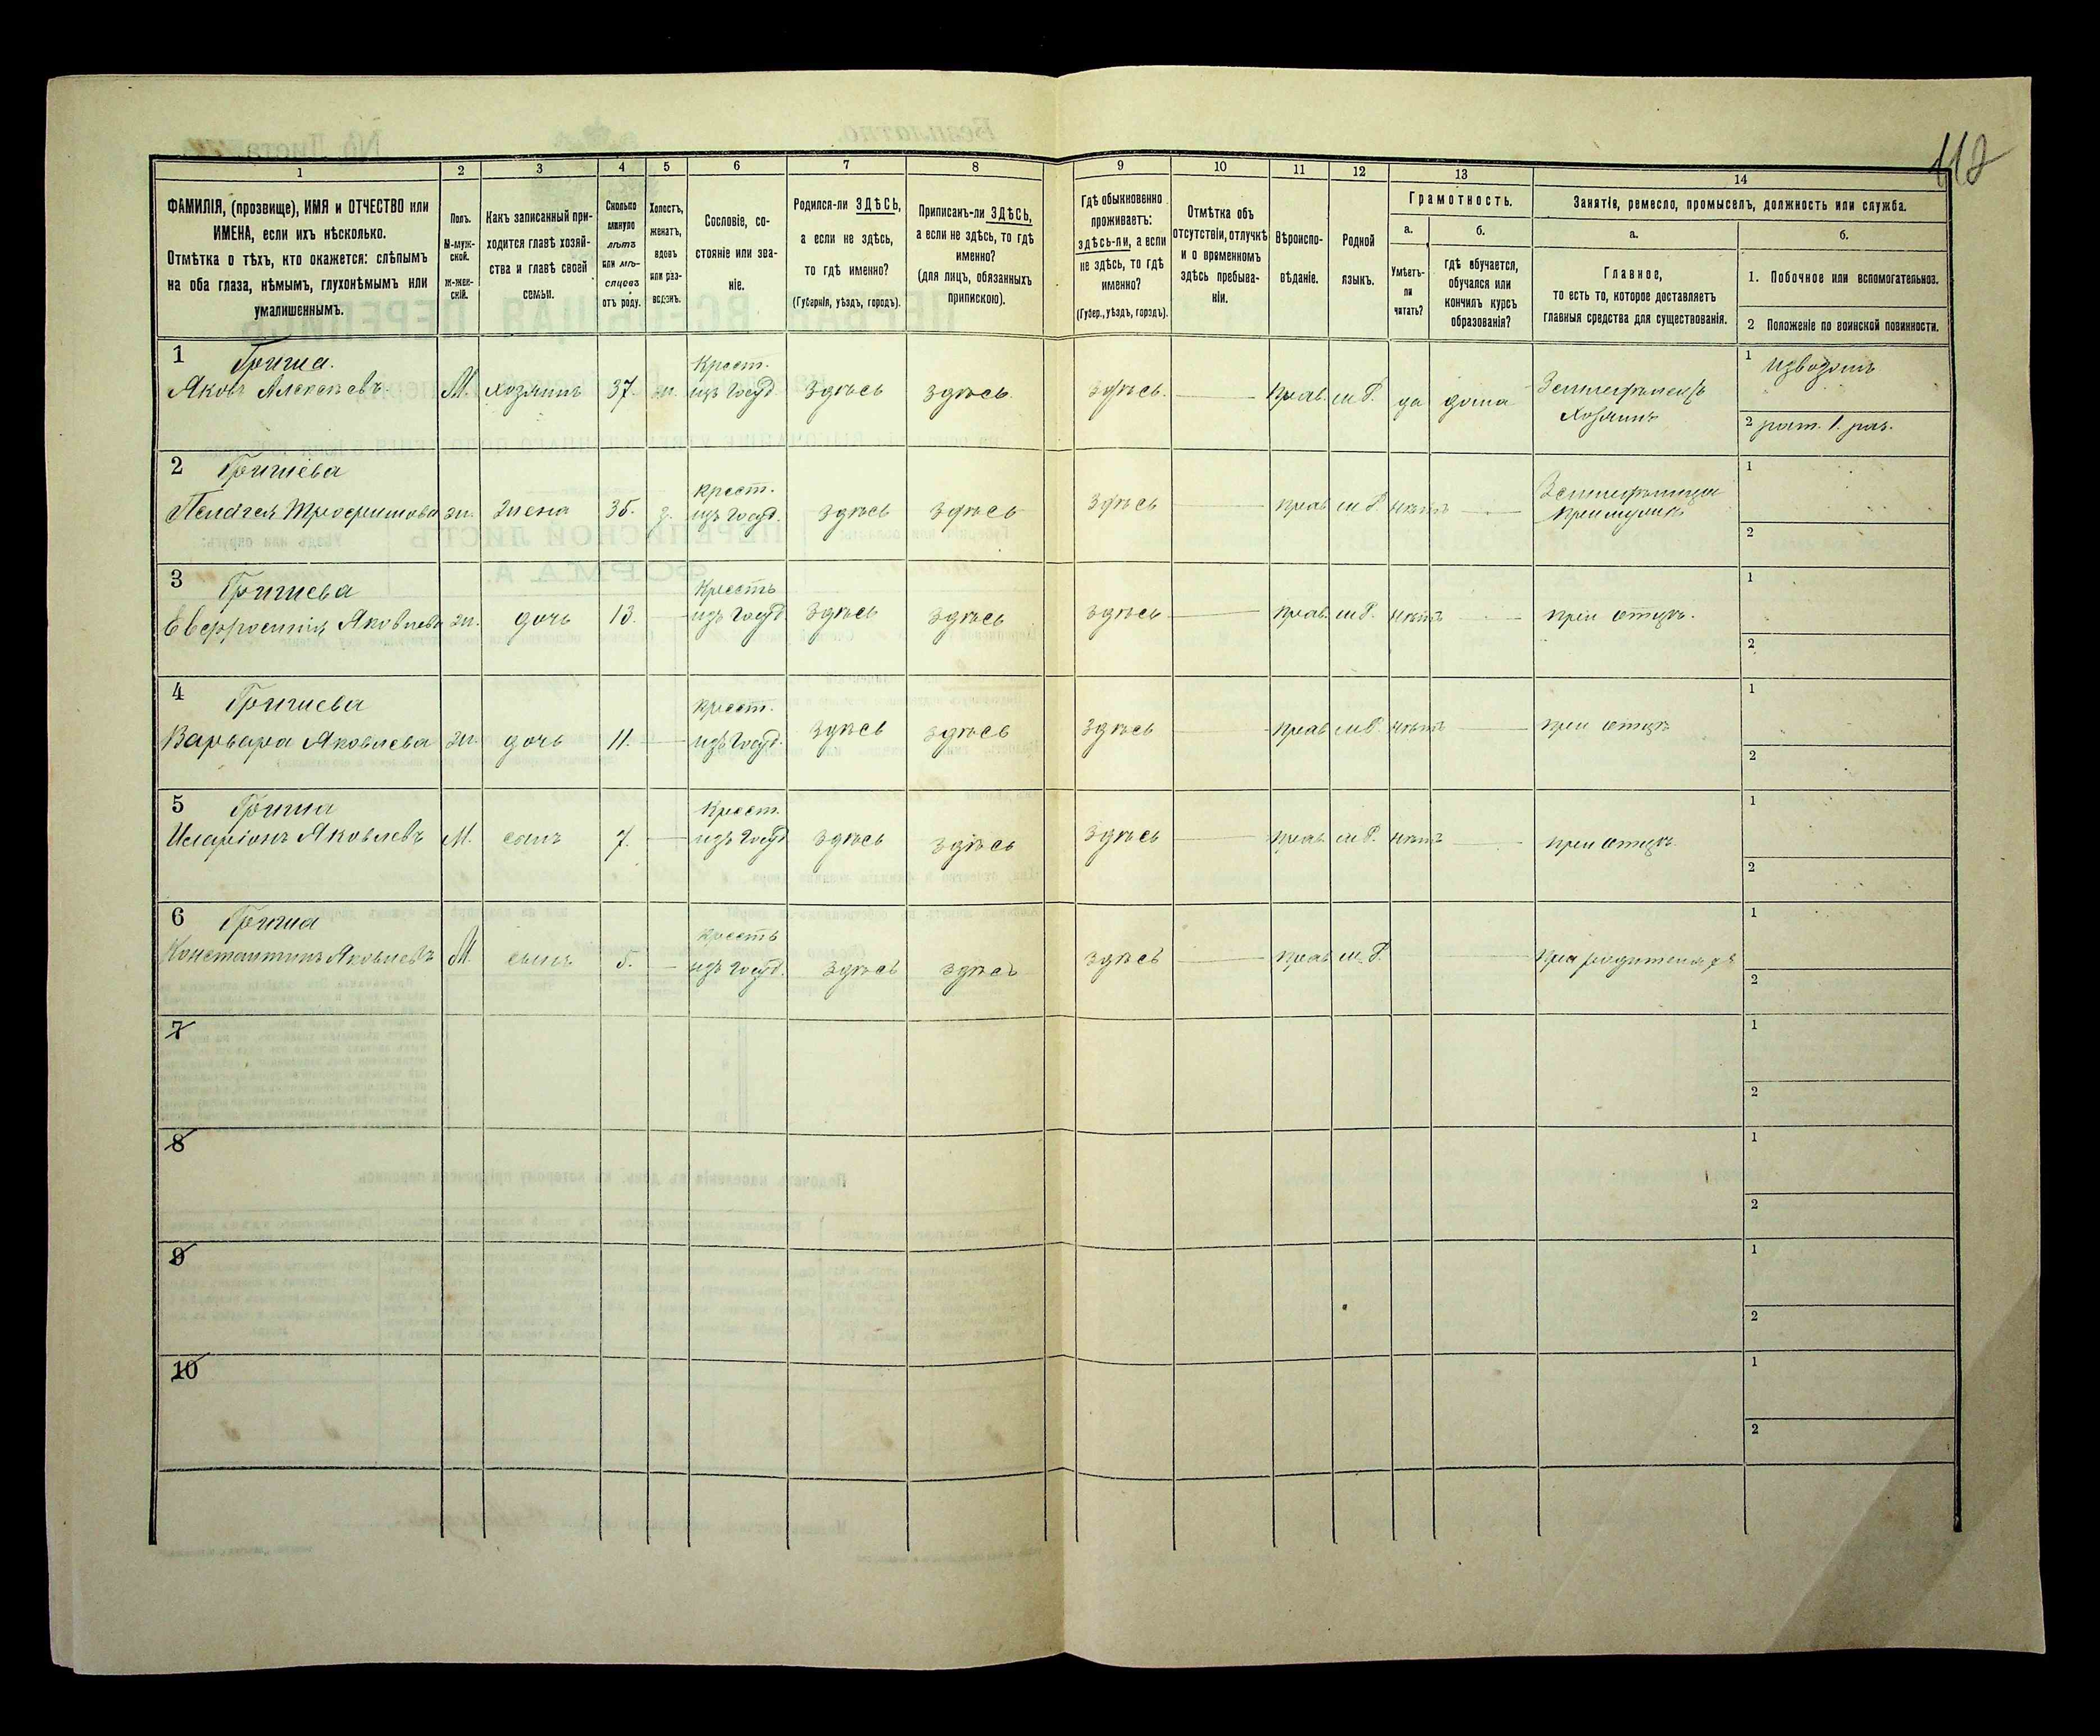 112
1 2 3 4 5 6 7 8 9 10 11 12 13 14
ФАМИЛІЯ, (прозвище), ИМЯ и ОТЧЕСТВО или
ИМЕНА, если ихъ нѣсколько.
Отмѣтка о тѣхъ, кто окажется: слѣпымъ
на оба глаза, нѣмымъ, глухонѣмымъ или
умалишеннымъ.
Полъ.
М-муж-
ской.
Ж-жен-
скій.
Какъ записанный при-
ходится главѣ хозяй-
ства и главѣ своей
семьи.
Сколько
минуло
лѣтъ
или мѣ-
сяцевъ
отъ роду.
Холостъ,
женатъ,
вдовъ
или раз-
веденъ.
Сословіе, со-
стояніе или зва-
ніе.
Родился-ли ЗДѢСЬ,
а если не здѣсь,
то гдѣ именно?
(Губернія, уѣздъ, городъ).
Приписанъ-ли ЗДѢСЬ,
а если не здѣсь, то гдѣ
именно?
(для лицъ, обязанныхъ
припискою).
Гдѣ обыкновенно
проживаетъ:
здѣсь-ли, а если
не здѣсь, то гдѣ
именно?
(Губер., уѣздъ, городъ).
Отмѣтка объ
отсутствіи, отлучкѣ
и о временномъ
здѣсь пребыва-
ніи.
Вѣроиспо-
вѣданіе.
Родной
языкъ.
Грамотность.
а.
Умѣетъ-
ли
читать?
б.
гдѣ обучается,
обучался или
кончилъ курсъ
образованія?
Занятіе, ремесло, промыселъ, должность или служба.
а.
Главное,
то есть то, которое доставляетъ
главныя средства для существованія.
б.
1. Побочное или вспомогательное.
2 Положеніе по воинской повинности.
1 Гриша. Крест. 1 извозомъ
Яковъ Алексѣевъ М. хозяинъ 37. ж. изъ Госуд. Здѣсь Здѣсь Здѣсь. Прав. м.Р. да дома Земледѣлецъ
Хозяинъ
2 рат. 1. раз.
2 Гришева Крест. 1
Пелагея Трофимова ж. жена 35. з. изъ Госуд. Здѣсь Здѣсь Здѣсь Прав м.Р. нѣтъ
при мужѣ
2
3 Гришева Кресть 1
Евфросинія Яковлева ж. дочь 13. изъ Госуд. Здѣсь Здѣсь Здѣсь Прав. м.Р. нѣтъ при отцѣ.
2
4 Гришева Крест. 1
Варвара Яковлева ж. дочь 11. изъ Госуд. Здѣсь Здѣсь Здѣсь Прав м.Р. нѣтъ при отцѣ
2
5 Гриша Крест. 1
Иларіонъ Яковлевъ М. сынъ 7. изъ Госуд. Здѣсь Здѣсь Здѣсь Прав. м.Р. нѣтъ при отцѣ.
2
6 Гриша Кресть 1
Константинъ Яковлевъ М. сынъ 5. изъ Госуд. Здѣсь Здѣсь Здѣсь Прав м.Р. при родителяхъ
2
7 1
2
8 1
2
9 1
2
10 1
2